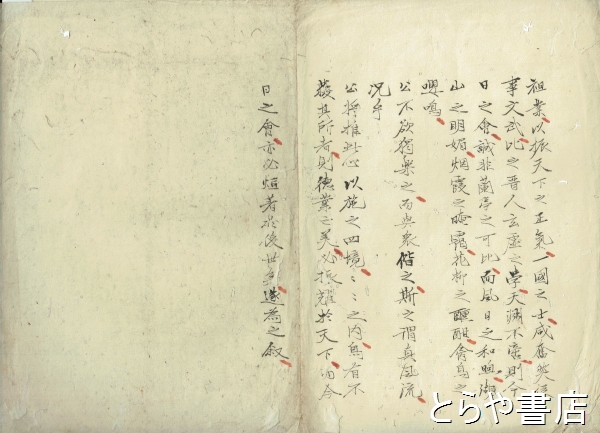 祖業以振天下之正氣一國之士咸奮然
事文武比之晋人玄虚之學天淵不啻則今
日之會誠非蘭亭之可比而風日之和煦湖
山之明媚烟霞之晻靄花柳之酣禽鳥之
嚶鳴
公不欲獨樂之而與衆偕之斯之謂真風流
况乎
公將推此心以施之四境々之内烏有不
其所者則德業之美必振耀於天下今
日之會亦必煊著於後世矣遂為之叙
とらや書店